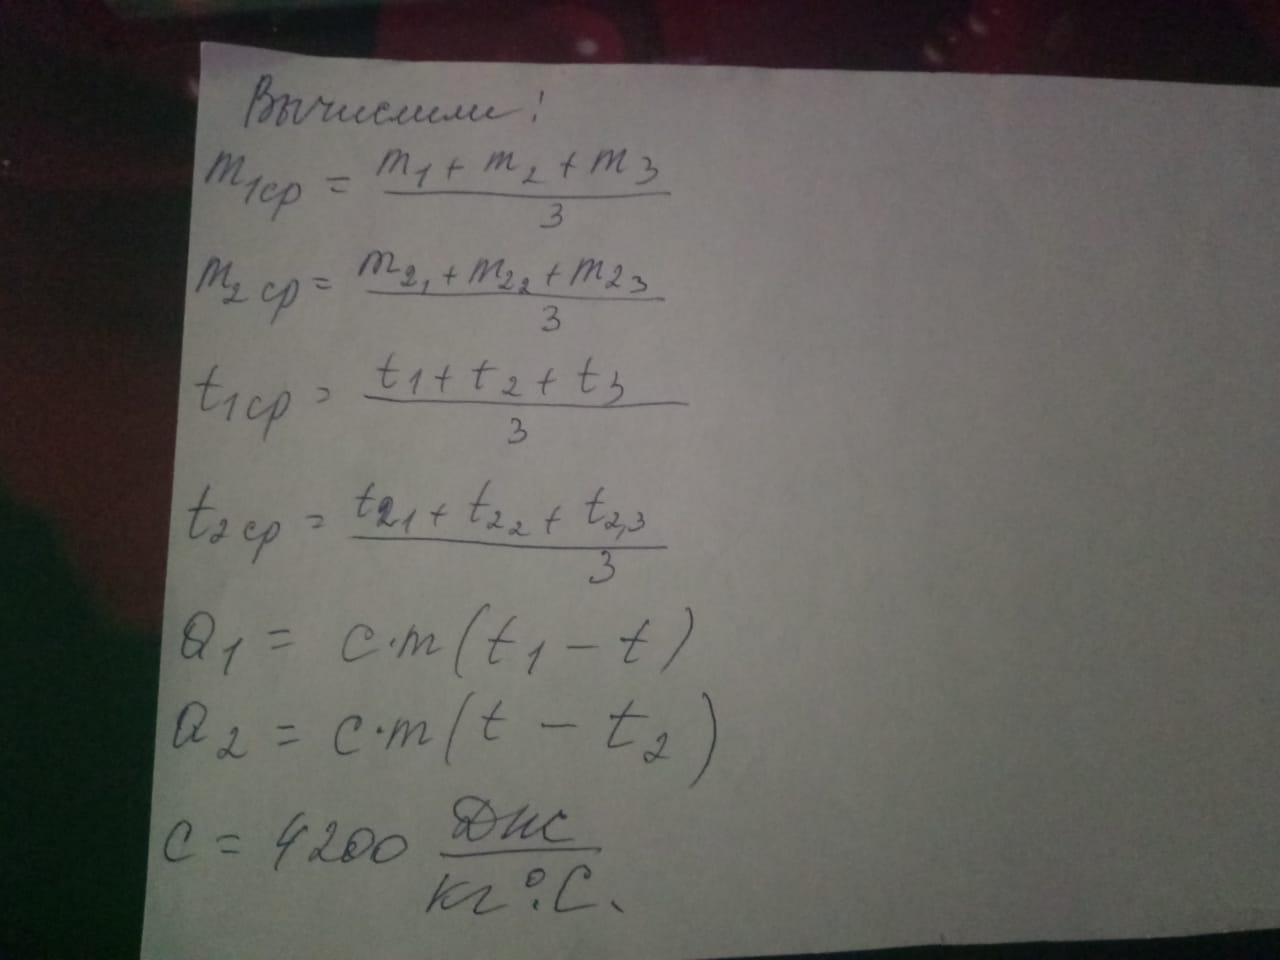 Вычислили:
m₁ср = (m₁ + m₂ + m₃) / 3
m₂ср = (m₂₁ + m₂₂ + m₂₃) / 3
t₁ср = (t₁ + t₂ + t₃) / 3
t₂ср = (t₂₁ + t₂₂ + t₂,₃) / 3
Q₁ = c·m(t₁ − t)
Q₂ = c·m(t − t₂)
c = 4200 Дж / кг·°C.